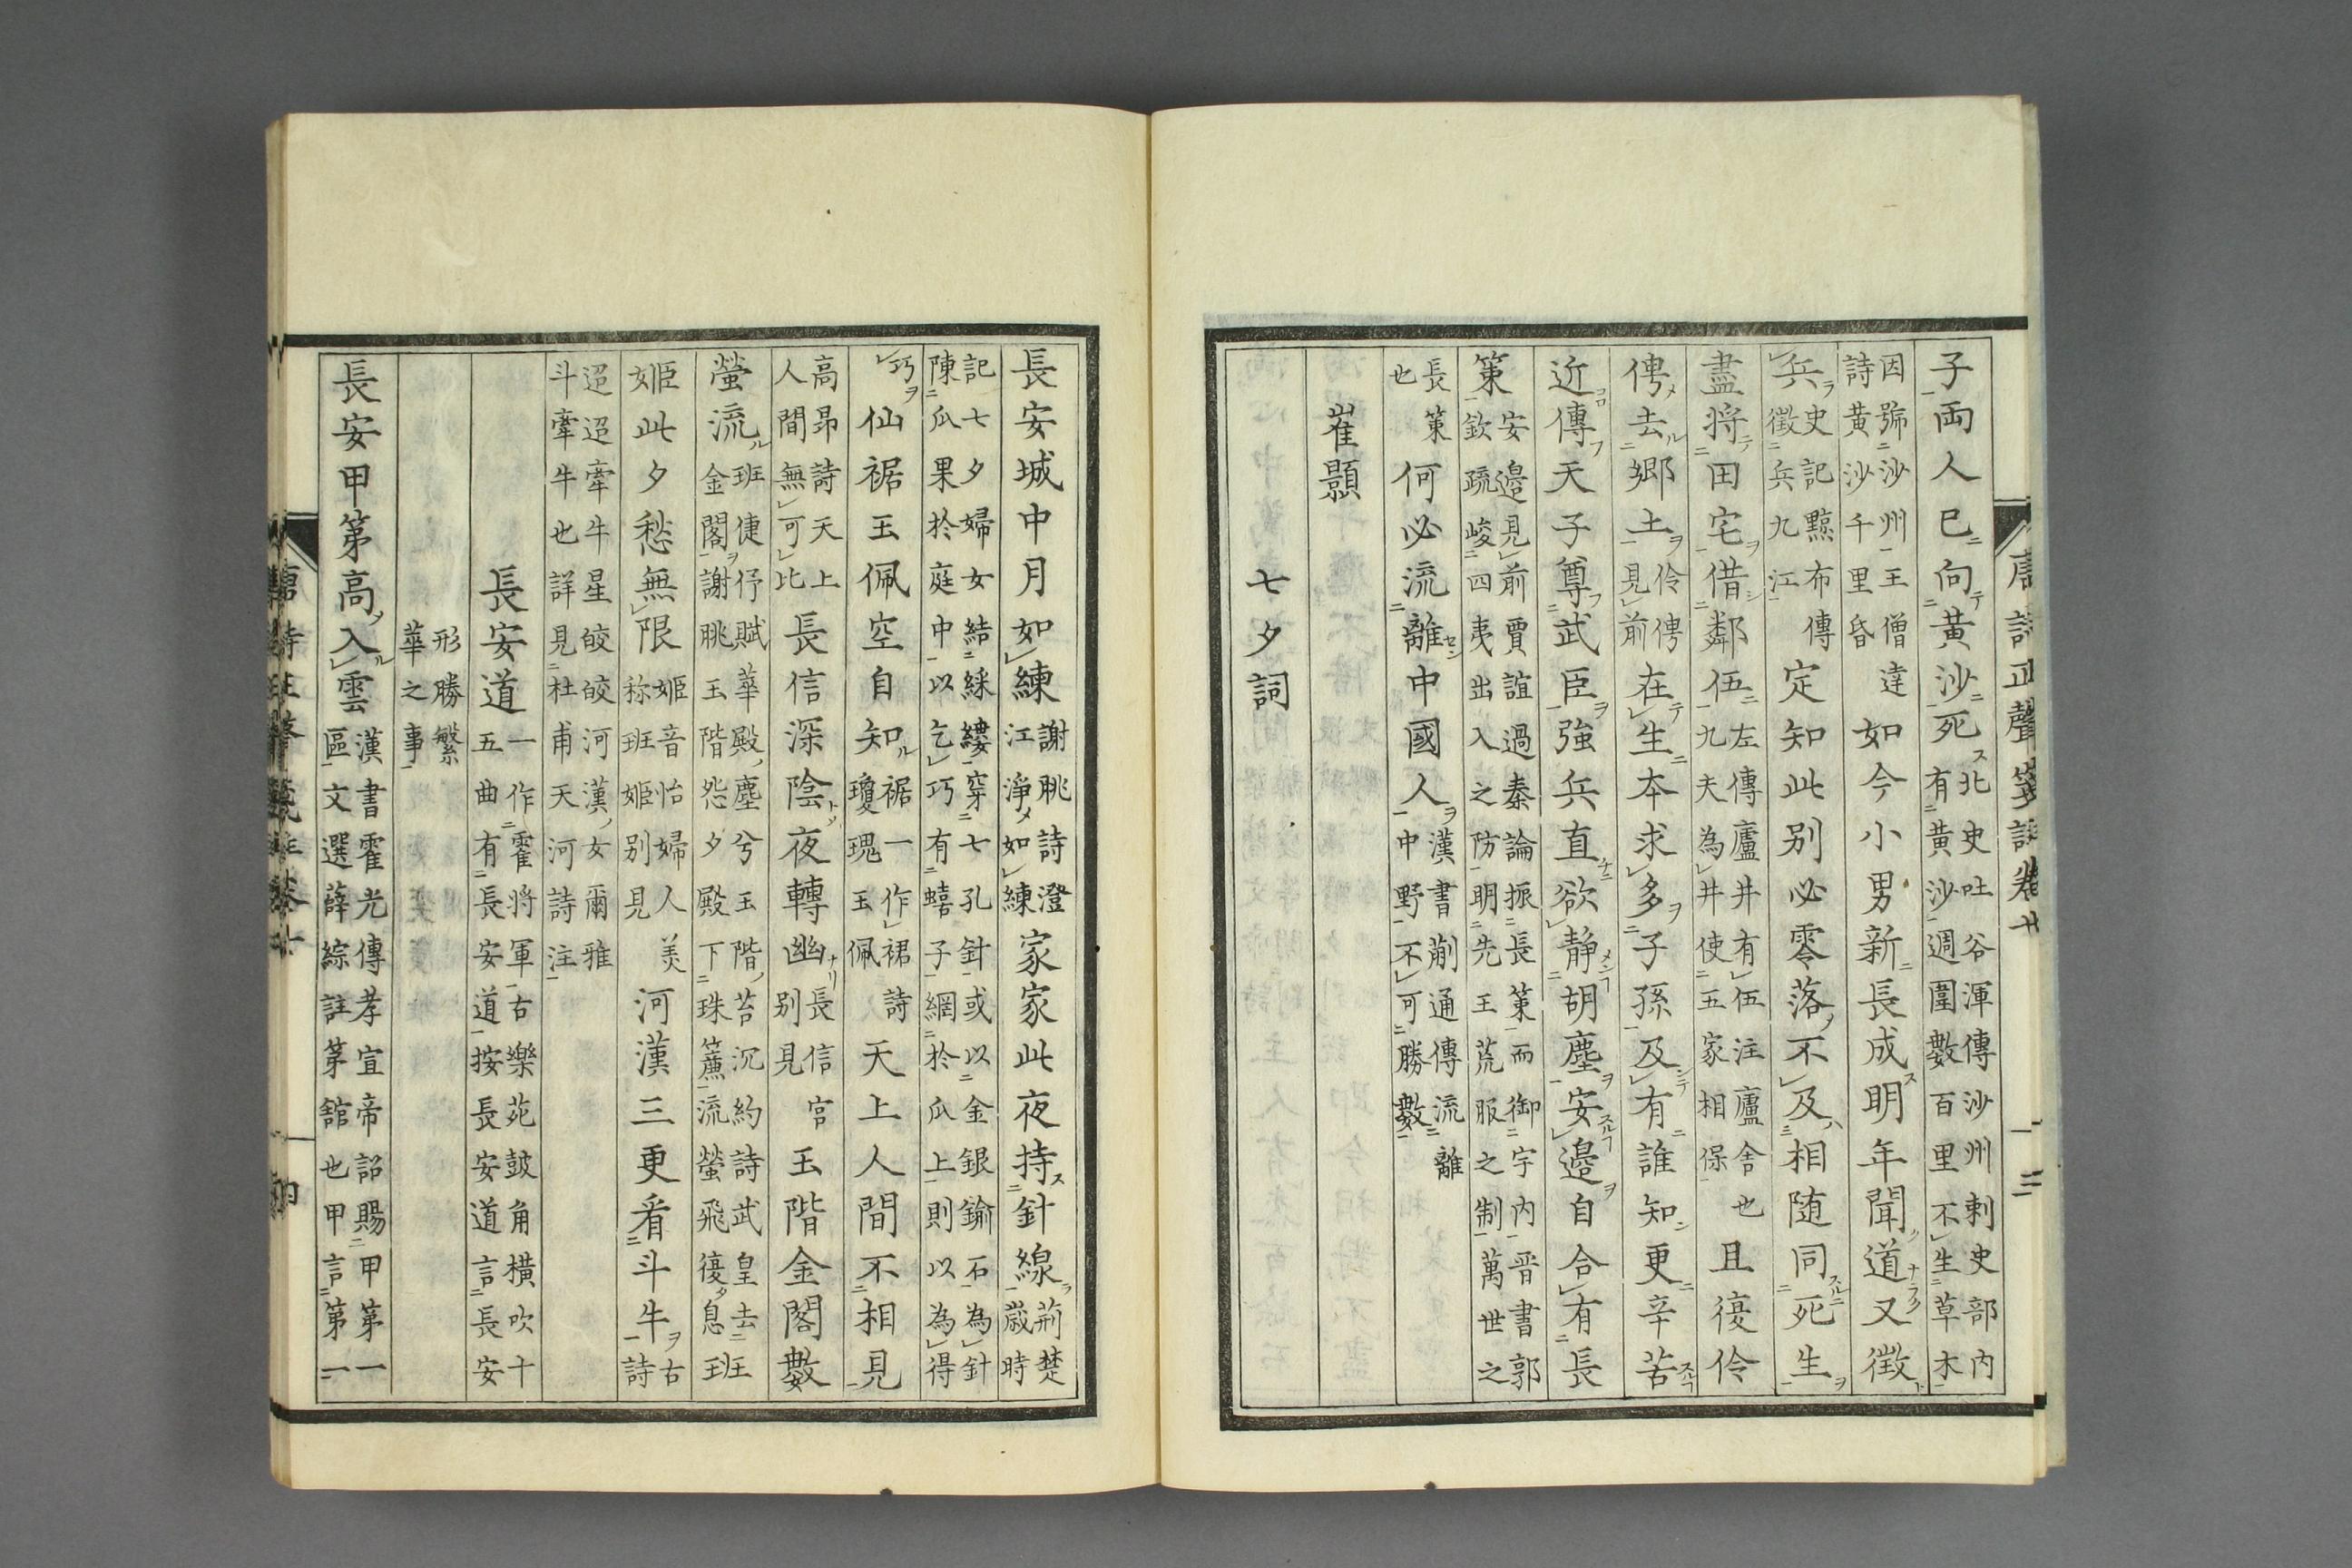 子兩人已向黃沙死北史吐谷渾傳沙州刺史部內有黃沙週圍數百里不生草木
因號沙州王僧達詩黃沙千里昏如今小男新長成明年聞道又徵
兵史記黥布傳徵兵九江定知此別必零落不及相隨同死生
盡將田宅借鄰伍左傳廬井有伍注廬舍也九夫為井使五家相保且復伶
俜去鄉土伶俜見前在生本求多子孫及有誰知更辛苦
近傳天子尊武臣強兵直欲靜胡塵安邊自合有長
策安邊見前賈誼過秦論振長策而御宇內晋書郭欽疏峻四夷出入之防明先王荒服之制萬世之
長策也何必流離中國人漢書蒯通傳流離中野不可勝數
崔顥
七夕詞
長安城中月如練謝朓詩澄江淨如練家家此夜持針線荊楚歲時
記七夕婦女結綵縷穿七孔針或以金銀鍮石為針陳瓜果於庭中以乞巧有蟢子網於瓜上則以為得
巧仙裾玉佩空自知裾一作裙詩瓊瑰玉佩天上人間不相見
高昂詩天上人間無可比長信深陰夜轉幽長信宮別見玉階金閣數
螢流班倢伃賦華殿塵兮玉階苔沉約詩武皇去金閣謝朓玉階怨夕殿下珠簾流螢飛復息班
姬此夕愁無限姬音怡婦人美称班姬別見河漢三更看斗牛古詩
迢迢牽牛星皎皎河漢女爾雅斗牽牛也詳見杜甫天河詩注
長安道一作霍將軍古樂苑鼓角橫吹十五曲有長安道按長安道言長安
形勝繁華之事
長安甲第高入雲漢書霍光傳孝宣帝詔賜甲第一區文選薛綜註第館也甲言第一